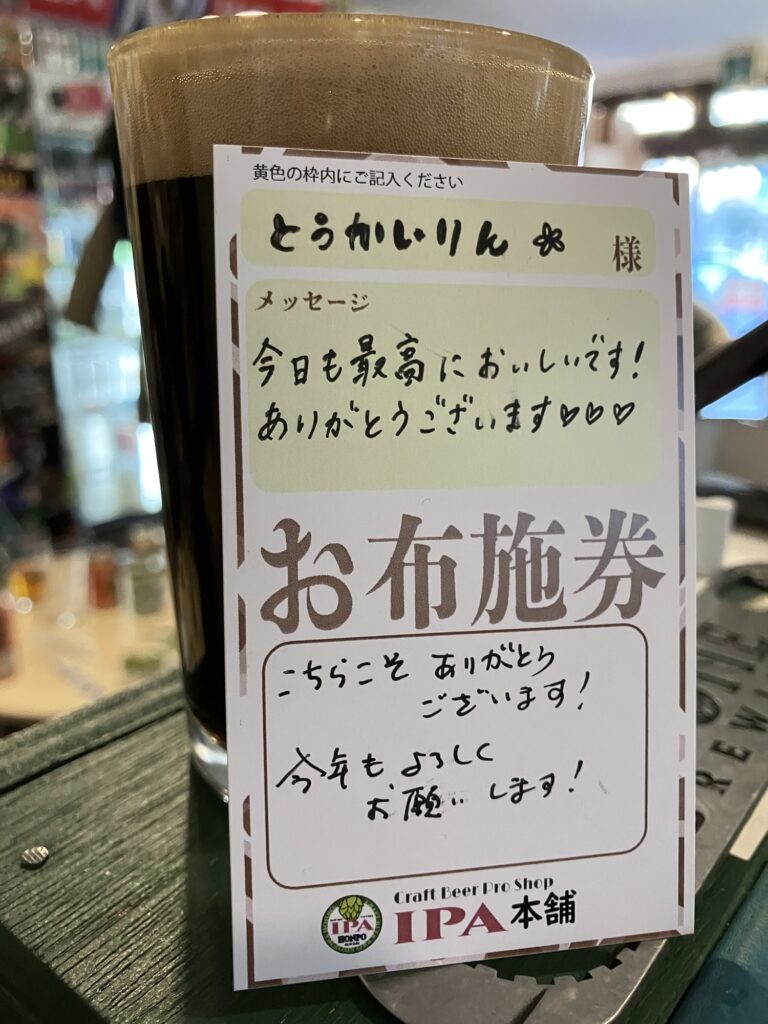 黄色の枠内にご記入ください
とうかいりん 様
メッセージ
今日も最高においしいです!
ありがとうございます♡♡♡
お布施券
こちらこそ ありがとう
ございます!
今年もよろしく
お願いします!
Craft Beer Pro Shop
IPA本舗
IPA
HONPO